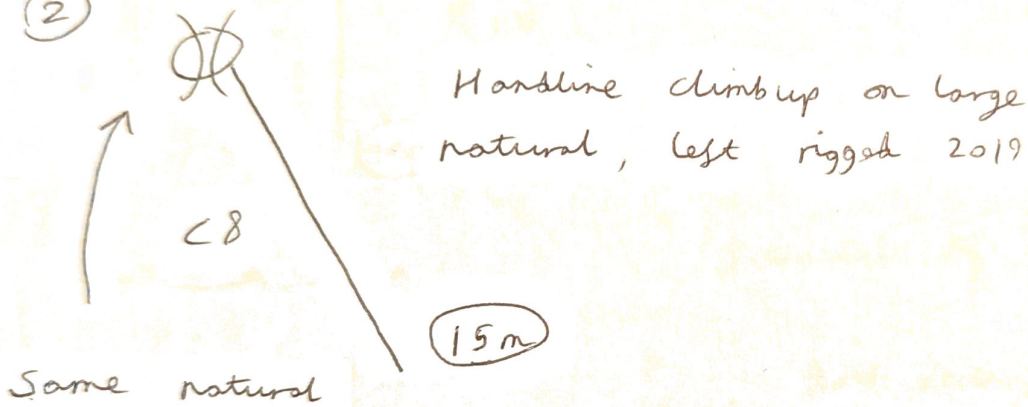 2
Handline climb up on large
natural, left rigged 2019
C8
15m
Same natural